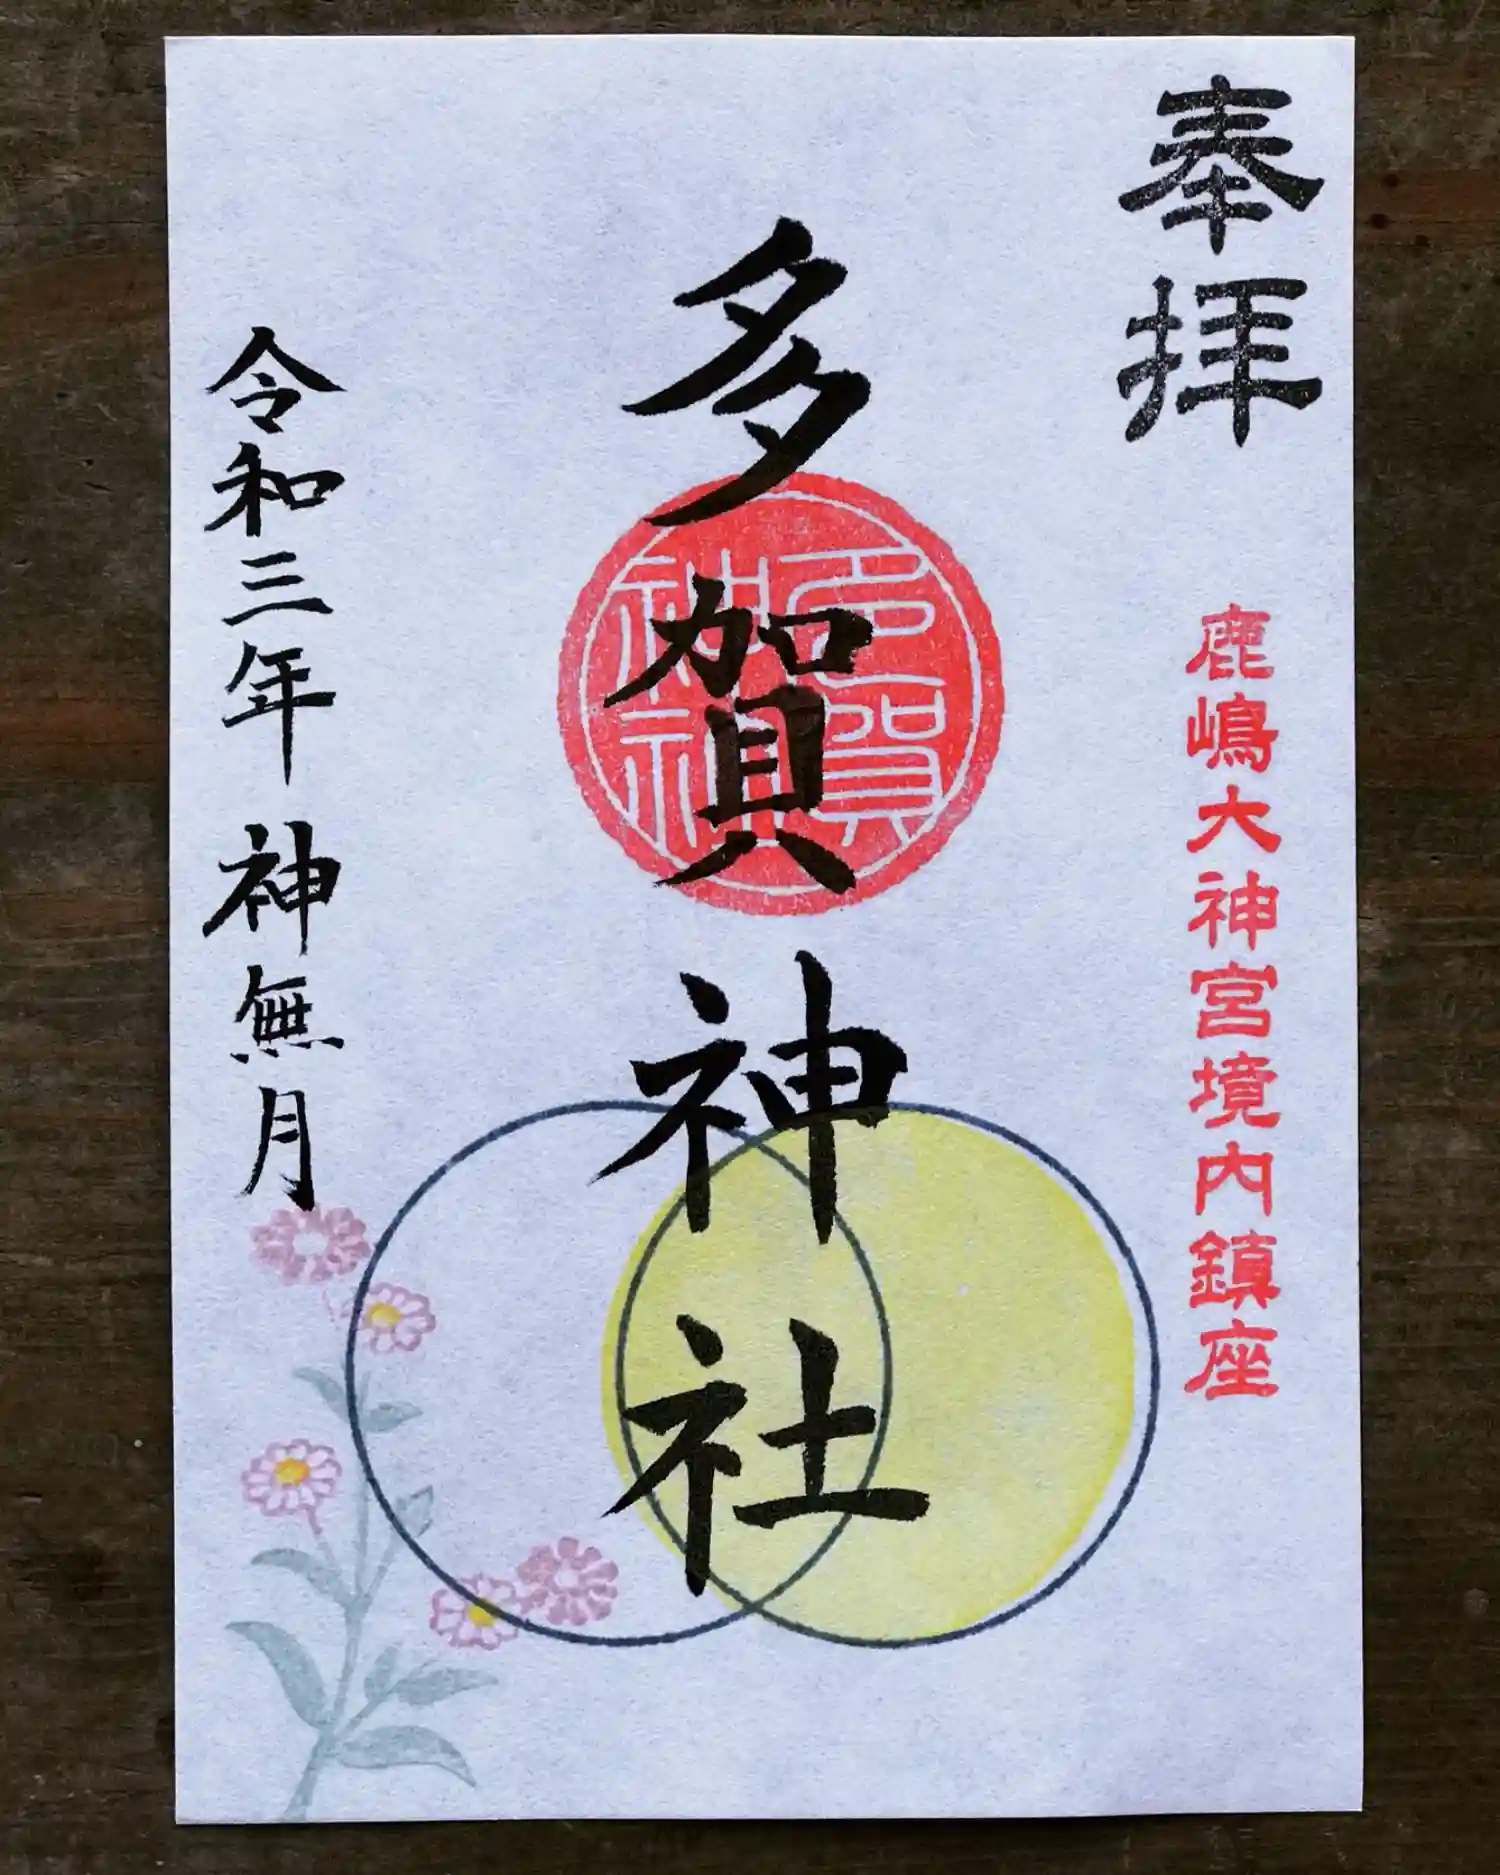 奉拝
鹿嶋大神宮境内鎮座
多賀神社
多賀
神社
令和三年 神無月